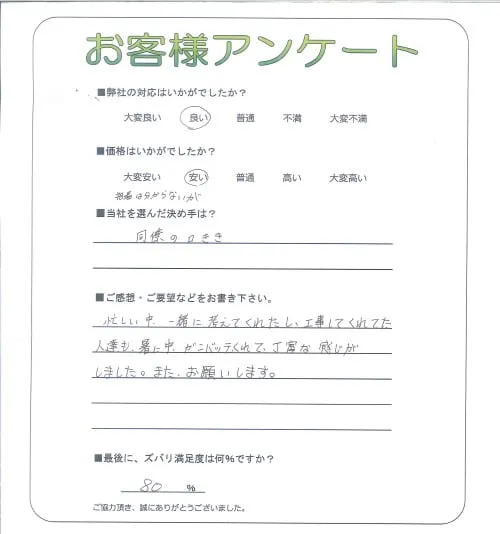 お客様アンケート
■弊社の対応はいかがでしたか？
大変良い 良い 普通 不満 大変不満
■価格はいかがでしたか？
大変安い 安い 普通 高い 大変高い
は分からないが
■当社を選んだ決め手は？
同僚の口きき
■ご感想・ご要望などをお書き下さい。
忙しい中、一緒に考えてくれたし、工事してくれてた
人達も、暑い中、ガンバッテくれて、丁寧な感じが
しました。また、お願いします。
■最後に、ズバリ満足度は何％ですか？
80 ％
ご協力頂き、誠にありがとうございました。